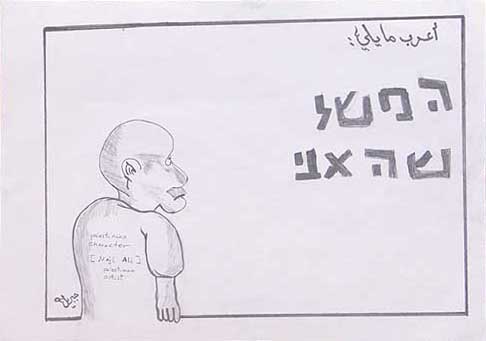 أعرب ما يلي:
המשל
שהאני
palestinian
character
[Naji Ali]
palestinian
artist